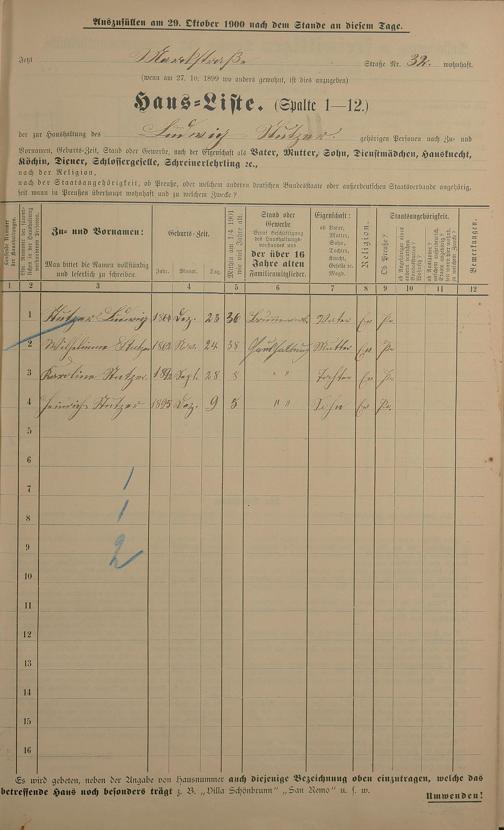 Auszufüllen am 29. Oktober 1900 nach dem Stande an diesem Tage.
Jetzt Marktstraße Straße Nr. 32. wohnhaft.
(wenn am 27. 10. 1899 wo anders gewohnt, ist dies anzugeben)
Haus=Liste. (Spalte 1—12.)
der zur Haushaltung des Ludwig Stutzer gehörigen Personen nach Zu- und
Vornamen, Geburts-Zeit, Stand oder Gewerbe, nach der Eigenschaft als Vater, Mutter, Sohn, Dienstmädchen, Hausknecht,
Köchin, Diener, Schlossergeselle, Schreinerlehrling ꝛc.,
nach der Religion,
nach der Staatsangehörigkeit, ob Preuße, oder welchem anderen deutschen Bundesstaate oder außerdeutschen Staatsverbande angehörig,
seit wann in Preußen überhaupt wohnhaft und zu welchem Zwecke?
Zu- und Vornamen:
Man bittet die Namen vollständig
und leserlich zu schreiben.
Geburts-Zeit.
Jahr. Monat. Tag.
Mithin am 1/4 1901
wie viel Jahre alt.
Stand oder
Gewerbe
der über 16
Jahre alten
Familienmitglieder.
Eigenschaft:
ob Vater,
Mutter,
Sohn,
Tochter,
Knecht,
Geselle u.
Magd.
Religion.
Staatsangehörigkeit.
Ob Preuße?
Bemerkungen.
1 2 3 4 5 6 7 8 9 10 11 12
1 Stutzer Ludwig 1864 Dez. 23 36 Vater Ev Pr.
2 Wilhelmine Stutzer 1862 Nov. 24 38 Haushaltung Mutter Ev Pr.
3 Karoline Stutzer Sept. 28 8 " " Tochter Ev Pr.
4 Heinrich Stutzer 1895 Dez. 9 5 " " Sohn Ev Pr.
5
6
7 1
8 1
9 2
10
11
12
13
14
15
16
Es wird gebeten, neben der Angabe von Hausnummer auch diejenige Bezeichnung oben einzutragen, welche das
betreffende Haus noch besonders trägt z. B. „Villa Schönbrunn" „San Remo" u. s. w.
Umwenden!